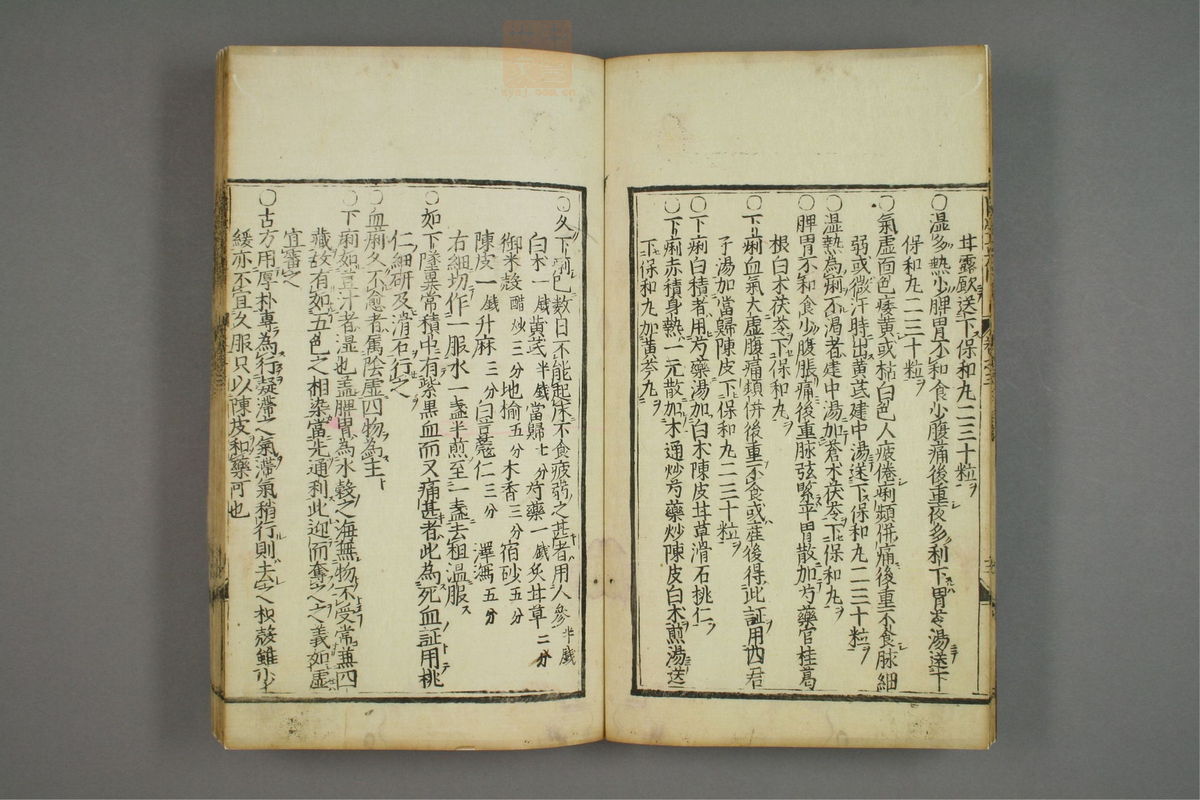 甘露飲送下保和丸二三十粒
○温多熱少脾胃不和食少腹痛後重夜多利下胃苓湯送下
保和丸二三十粒
○氣虚面色痿黄或枯白色人疲倦痢頻併痛後重不食脉細
弱或微汗時出黄茋建中湯送下保和丸二三十粒
○温熱為痢不渇者建中湯加蒼术茯苓下保和丸
○脾胃不和食少腹脹痛後重脉弦緊平胃散加芍藥官桂葛
根白术茯苓下保和丸
○下痢血氣大虚腹痛頻併後重不食或産後得此証用四君
子湯加當歸陳皮下保和丸二三十粒
○下痢白積者用芍藥湯加白术陳皮甘草滑石桃仁
○下痢赤積身熱一元散加木通炒芍藥炒陳皮白术煎湯送
下保和丸加黄芩丸
○久下痢已數日不能起床不食疲弱之甚者用人參半戔
白术一戔黄茋半戔當歸七分芍藥一戔炙甘草二分
御米殼醋炒三分地榆五分木香三分宿砂五分
陳皮一戔升麻三分白荳蔻仁三分澤瀉五分
右細切作一服水一盞半煎至一盞去租温服
○如下墜異常積中有紫黒血而又痛甚者此為死血証用桃
仁細研及滑石行之
○血痢久不愈者属陰虚四物為主
○下痢如荳汁者湿也盖脾胃為水穀之海無物不受常兼四
藏故有如五色之相染當先通利此迎而奪之之義如虚
宜審之
○古方用厚朴專為行凝滯之氣滯氣稍行則去之枳殼雖少
緩亦不宜久服只以陳皮和藥可也